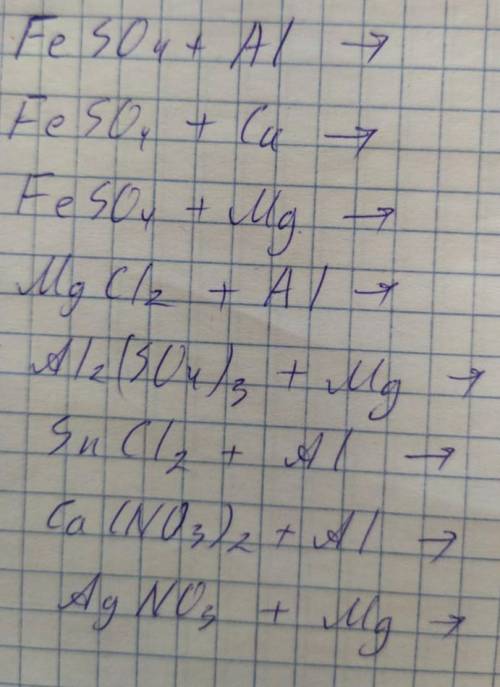 FeSO4 + Al →
FeSO4 + Cu →
FeSO4 + Mg →
MgCl2 + Al →
Al2(SO4)3 + Mg →
SnCl2 + Al →
Ca(NO3)2 + Al →
AgNO3 + Mg →